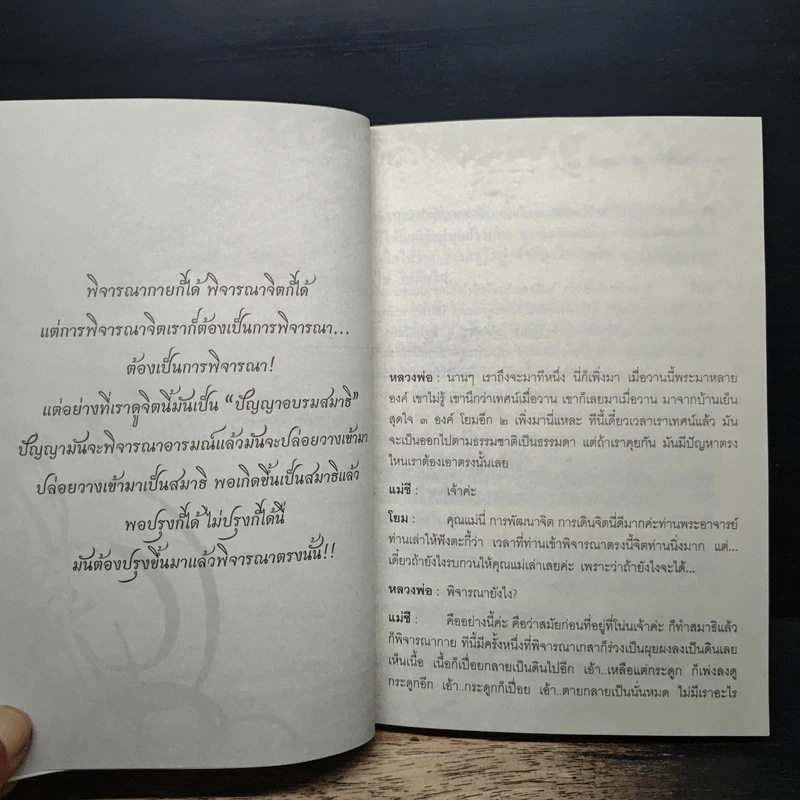 พิจารณากายก็ได้ พิจารณาจิตก็ได้
แต่การพิจารณาจิตเราก็ต้องเป็นการพิจารณา...
ต้องเป็นการพิจารณา!
แต่อย่างที่เราดูจิตนี้มันเป็น “ปัญญาอบรมสมาธิ”
ปัญญามันจะพิจารณาอารมณ์แล้วมันจะปล่อยวางเข้ามา
ปล่อยวางเข้ามาเป็นสมาธิ พอเกิดขึ้นเป็นสมาธิแล้ว
พอปรุงก็ได้ ไม่ปรุงก็ได้นี่
มันต้องปรุงขึ้นมาแล้วพิจารณาตรงนั้น!!
หลวงพ่อ : นานๆ เราถึงจะมาทีหนึ่ง นี่ก็เพิ่งมา เมื่อวานนี้พระมาหลาย
องค์ เขาไม่รู้ เขานึกว่าเทศน์เมื่อวาน เขาก็เลยมาเมื่อวาน มาจากบ้านเย็น
สุดใจ ๓ องค์ โยมอีก ๒ เพิ่งมานี่แหละ ทีนี้เดี๋ยวเวลาเราเทศน์แล้ว มัน
จะเป็นออกไปตามธรรมชาติเป็นธรรมดา แต่ถ้าเราคุยกัน มันมีปัญหาตรง
ไหนเราต้องเอาตรงนั้นเลย
แม่ชี : เจ้าค่ะ
โยม : คุณแม่นี่ การพัฒนาจิต การเดินจิตนี่ดีมากค่ะท่านพระอาจารย์
ท่านเล่าให้ฟังตะกี้ว่า เวลาที่ท่านเข้าพิจารณาตรงนี้จิตท่านนิ่งมาก แต่...
เดี๋ยวถ้ายังไงรบกวนให้คุณแม่เล่าเลยค่ะ เพราะว่าถ้ายังไงจะได้...
หลวงพ่อ : พิจารณายังไง?
แม่ชี : คืออย่างนี้ค่ะ คือว่าสมัยก่อนที่อยู่ที่โน่นเจ้าค่ะ ก็ทำสมาธิแล้ว
ก็พิจารณากาย ทีนี้มีครั้งหนึ่งที่พิจารณาเกสาก็ร่วงเป็นผุยผงลงเป็นดินเลย
เห็นเนื้อ เนื้อก็เปื่อยกลายเป็นดินไปอีก เอ้า..เหลือแต่กระดูก ก็เพ่งลงดู
กระดูกอีก เอ้า..กระดูกก็เปื่อย เอ้า..ตายกลายเป็นนั่นหมด ไม่มีเราอะไร